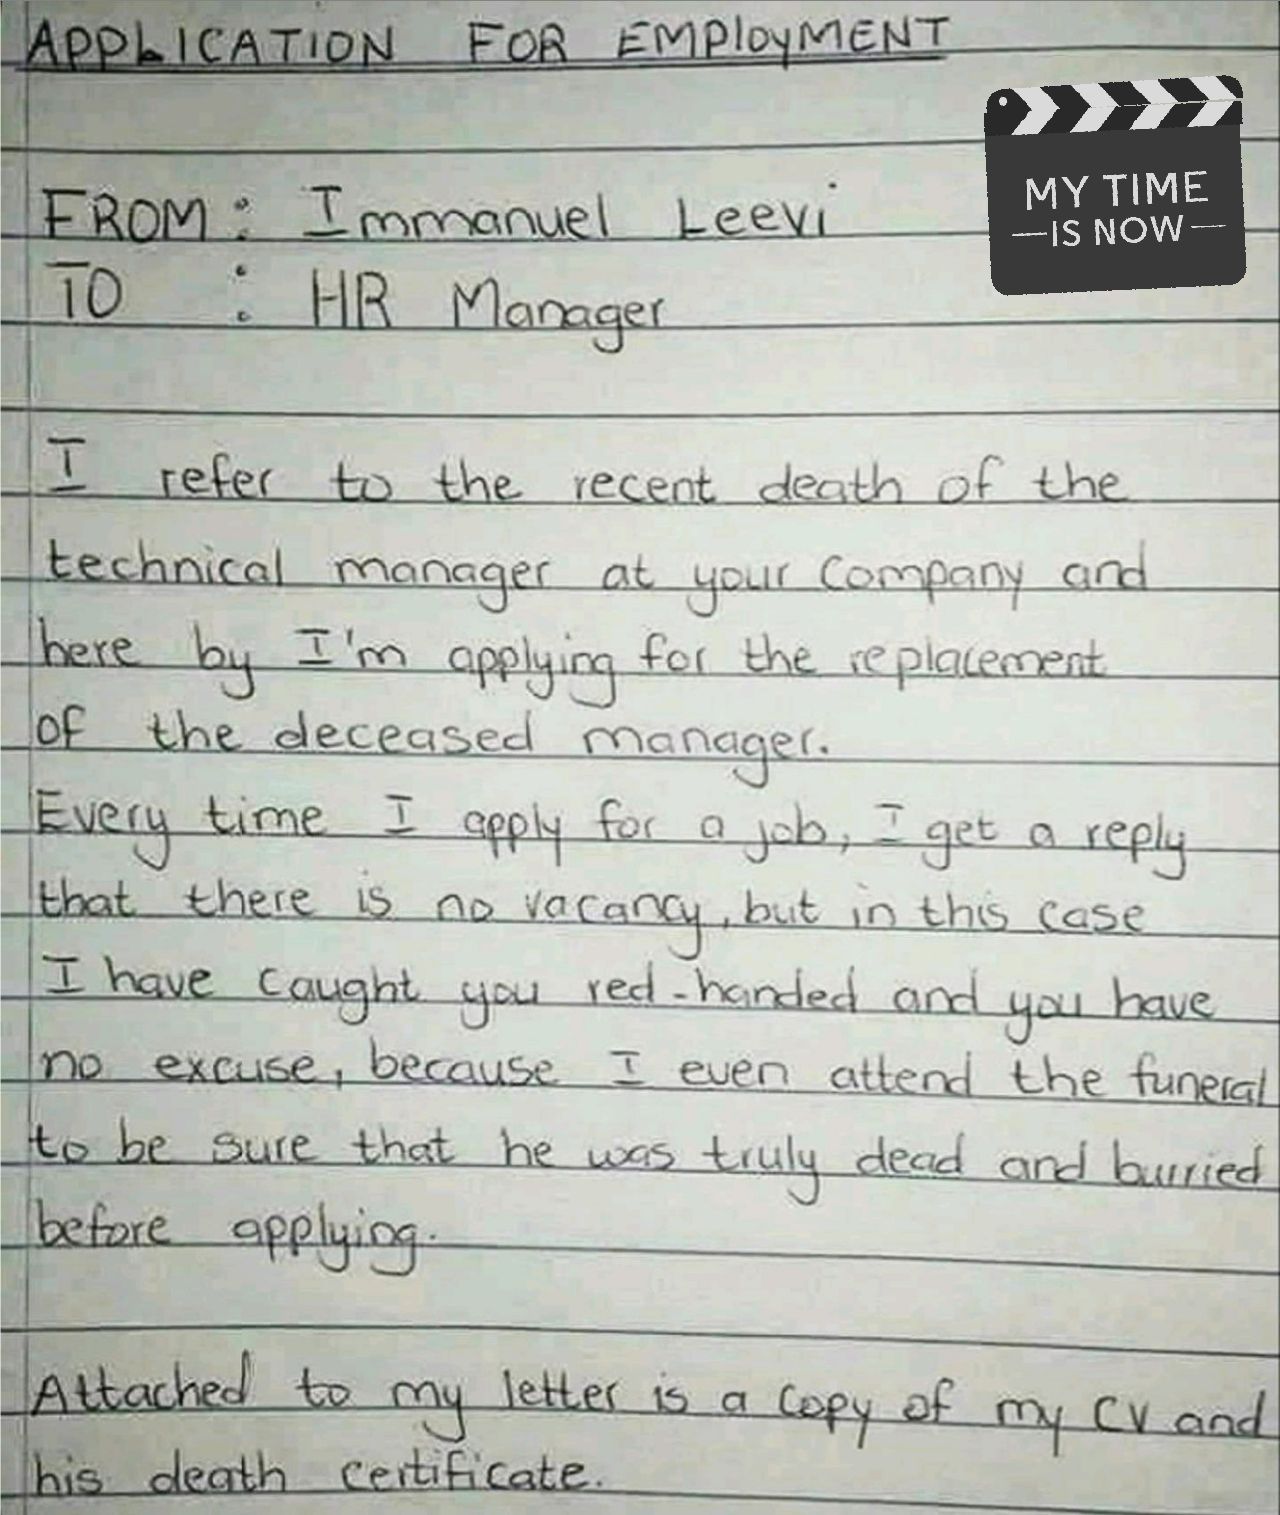 APPLICATION FOR EMPloyMENT
MY TIME
IS NOW
FROM: Immanuel Leevi
TO : HR Manager
I refer to the recent death of the
technical manager at your company and
here by I'm applying for the replacement
of the deceased manager.
Every time I apply for a job, I get a reply
that there is no vacancy, but in this case
I have caught you red-handed and you have
no excuse, because I even attend the funeral
to be sure that he was truly dead and burried
before applying.
Attached to my letter is a copy of my CV and
his death certificate.